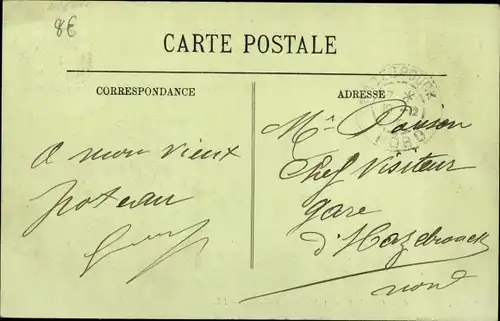 8€
CARTE POSTALE
CORRESPONDANCE
ADRESSE
NORD
A mon vieux
poteau
Mr
Chef Visiteur
Gare
d'Hazebrouck
Nord